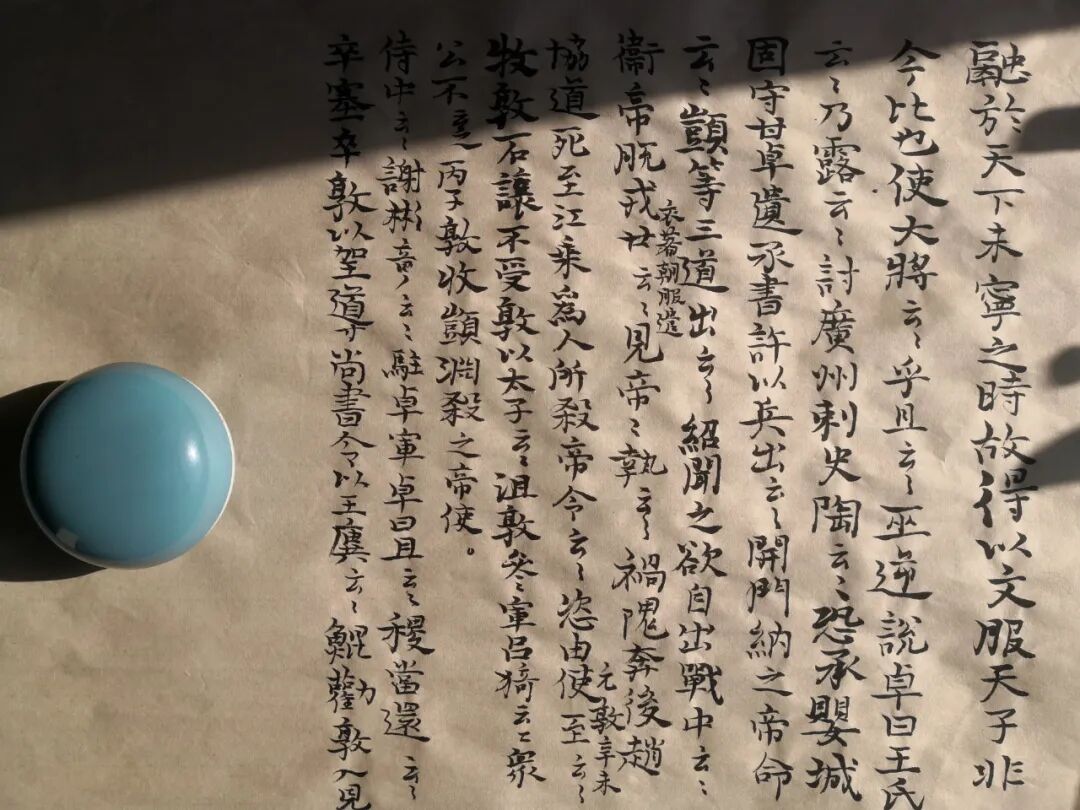 融於天下未寧之時故得以文服天子非
今比也使大將云〻乎且云〻巫逆說卓曰王氏
云〻乃露云〻討廣州刺史陶云〻恐承嬰城
固守甘卓遺承書許以兵出云〻開門納之帝命
云〻顗等三道出云〻紹聞之欲自出戰中云〻
衞帝脫戎云〻見帝〻執云〻禍隗奔後趙
衣著朝服遣
協道死至江乘爲人所殺帝令云〻恣由使至云〻
元敦辛未
牧敦石讓不受敦以太子云〻沮敦參軍呂猗云〻衆
公不丙子敦收顗淵殺之帝使。
侍中云〻謝云〻駐卓軍卓曰且云〻稷當還云〻
卒塞卒敦以道尚書令以王廙云〻鯤勸敦入見